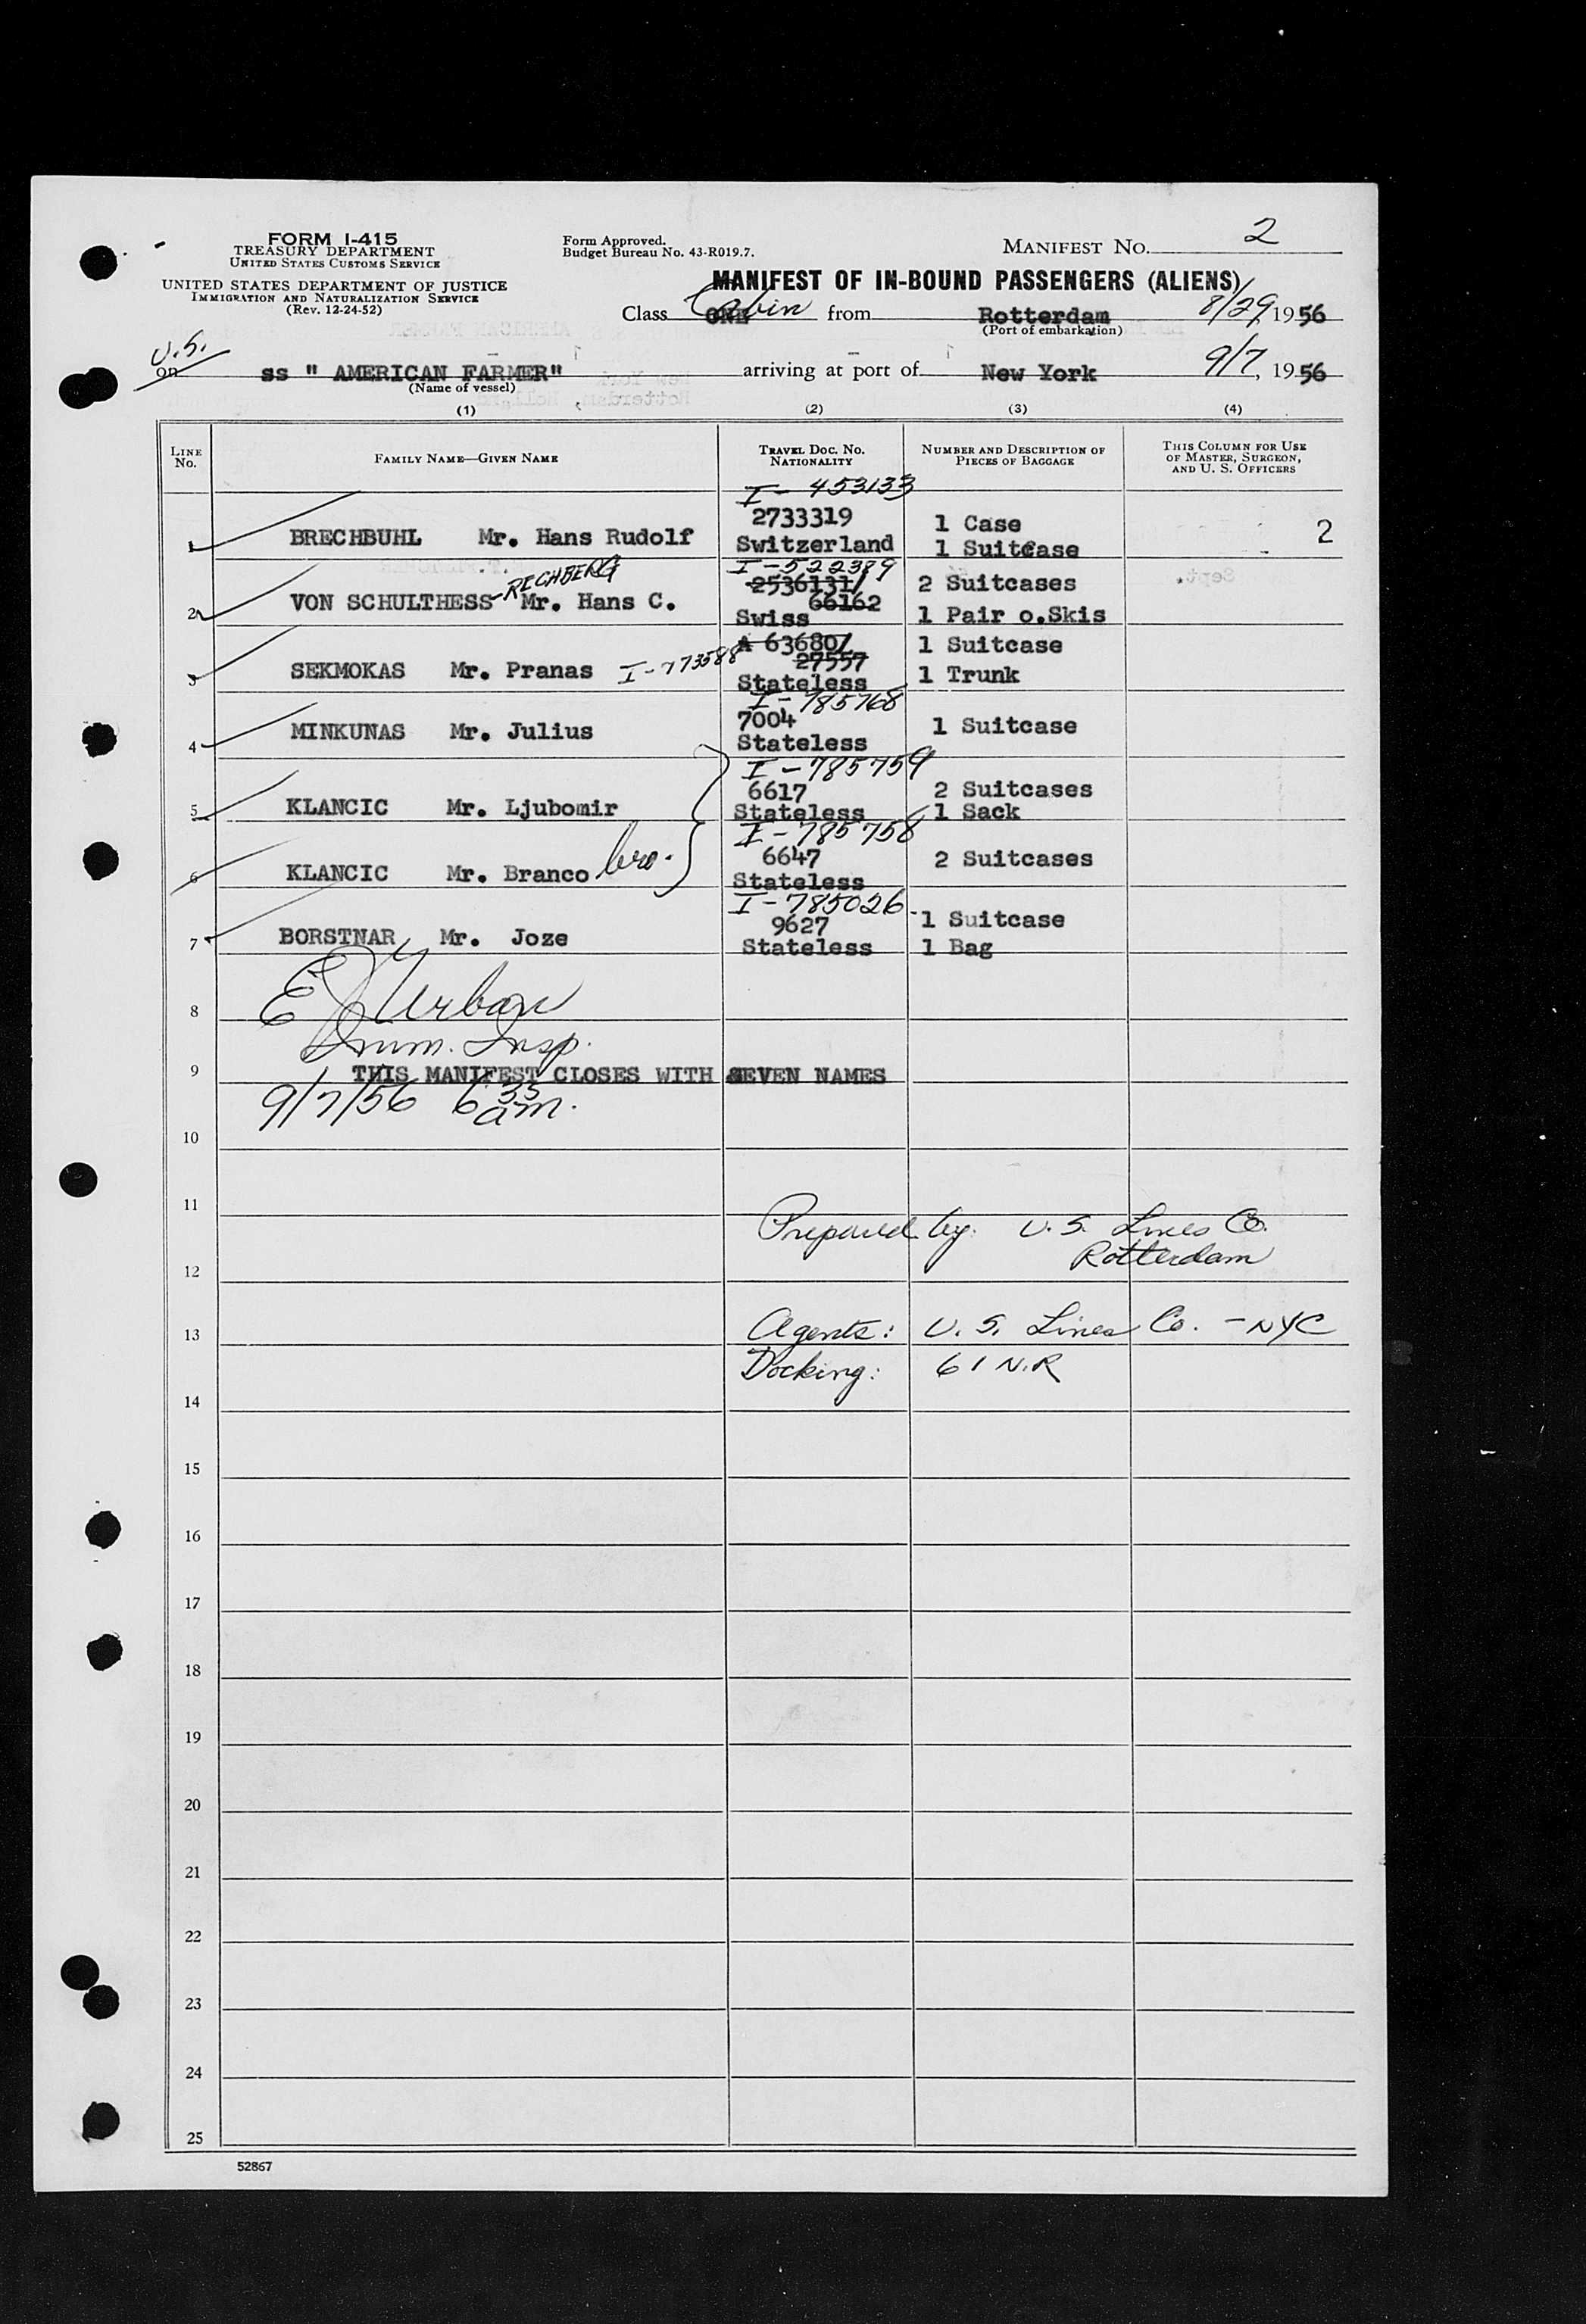 FORM I-415
TREASURY DEPARTMENT
UNITED STATES CUSTOMS SERVICE
UNITED STATES DEPARTMENT OF JUSTICE
IMMIGRATION AND NATURALIZATION SERVICE
(Rev. 12-24-52)
Form Approved.
Budget Bureau No. 43-R019.7.
MANIFEST No. 2
MANIFEST OF IN-BOUND PASSENGERS (ALIENS)
Class ONE Cabin from Rotterdam 8/29, 1956
(Port of embarkation)
U.S.
on ss " AMERICAN FARMER" arriving at port of New York 9/7, 1956
(Name of vessel)
(1) (2) (3) (4)
LINE No. FAMILY NAME—GIVEN NAME TRAVEL DOC. NO. NATIONALITY NUMBER AND DESCRIPTION OF PIECES OF BAGGAGE THIS COLUMN FOR USE OF MASTER, SURGEON, AND U. S. OFFICERS
I-453133
2733319 1 Case
1 BRECHBUHL Mr. Hans Rudolf Switzerland 1 Suitcase 2
-RECHBERG I-522389
2536131/ 2 Suitcases
2 VON SCHULTHESS Mr. Hans C. 66162
Swiss 1 Pair o.Skis
A 63680/ 1 Suitcase
27557
3 SEKMOKAS Mr. Pranas I-773588 Stateless 1 Trunk
I-785768
7004 1 Suitcase
4 MINKUNAS Mr. Julius Stateless
I-785759
6617 2 Suitcases
5 KLANCIC Mr. Ljubomir Stateless 1 Sack
I-785758
6647 2 Suitcases
6 KLANCIC Mr. Branco bro. Stateless
I-785026
9627 1 Suitcase
7 BORSTNAR Mr. Joze Stateless 1 Bag
8 E J Urban
Imm. Insp.
9 THIS MANIFEST CLOSES WITH SEVEN NAMES
9/7/56 6 35 am.
10
11
Prepared by: U.S. Lines Co.
Rotterdam
12
13 Agents: U.S. Lines Co. - NYC
Docking: 61 N.R
14
15
16
17
18
19
20
21
22
23
24
25
52867